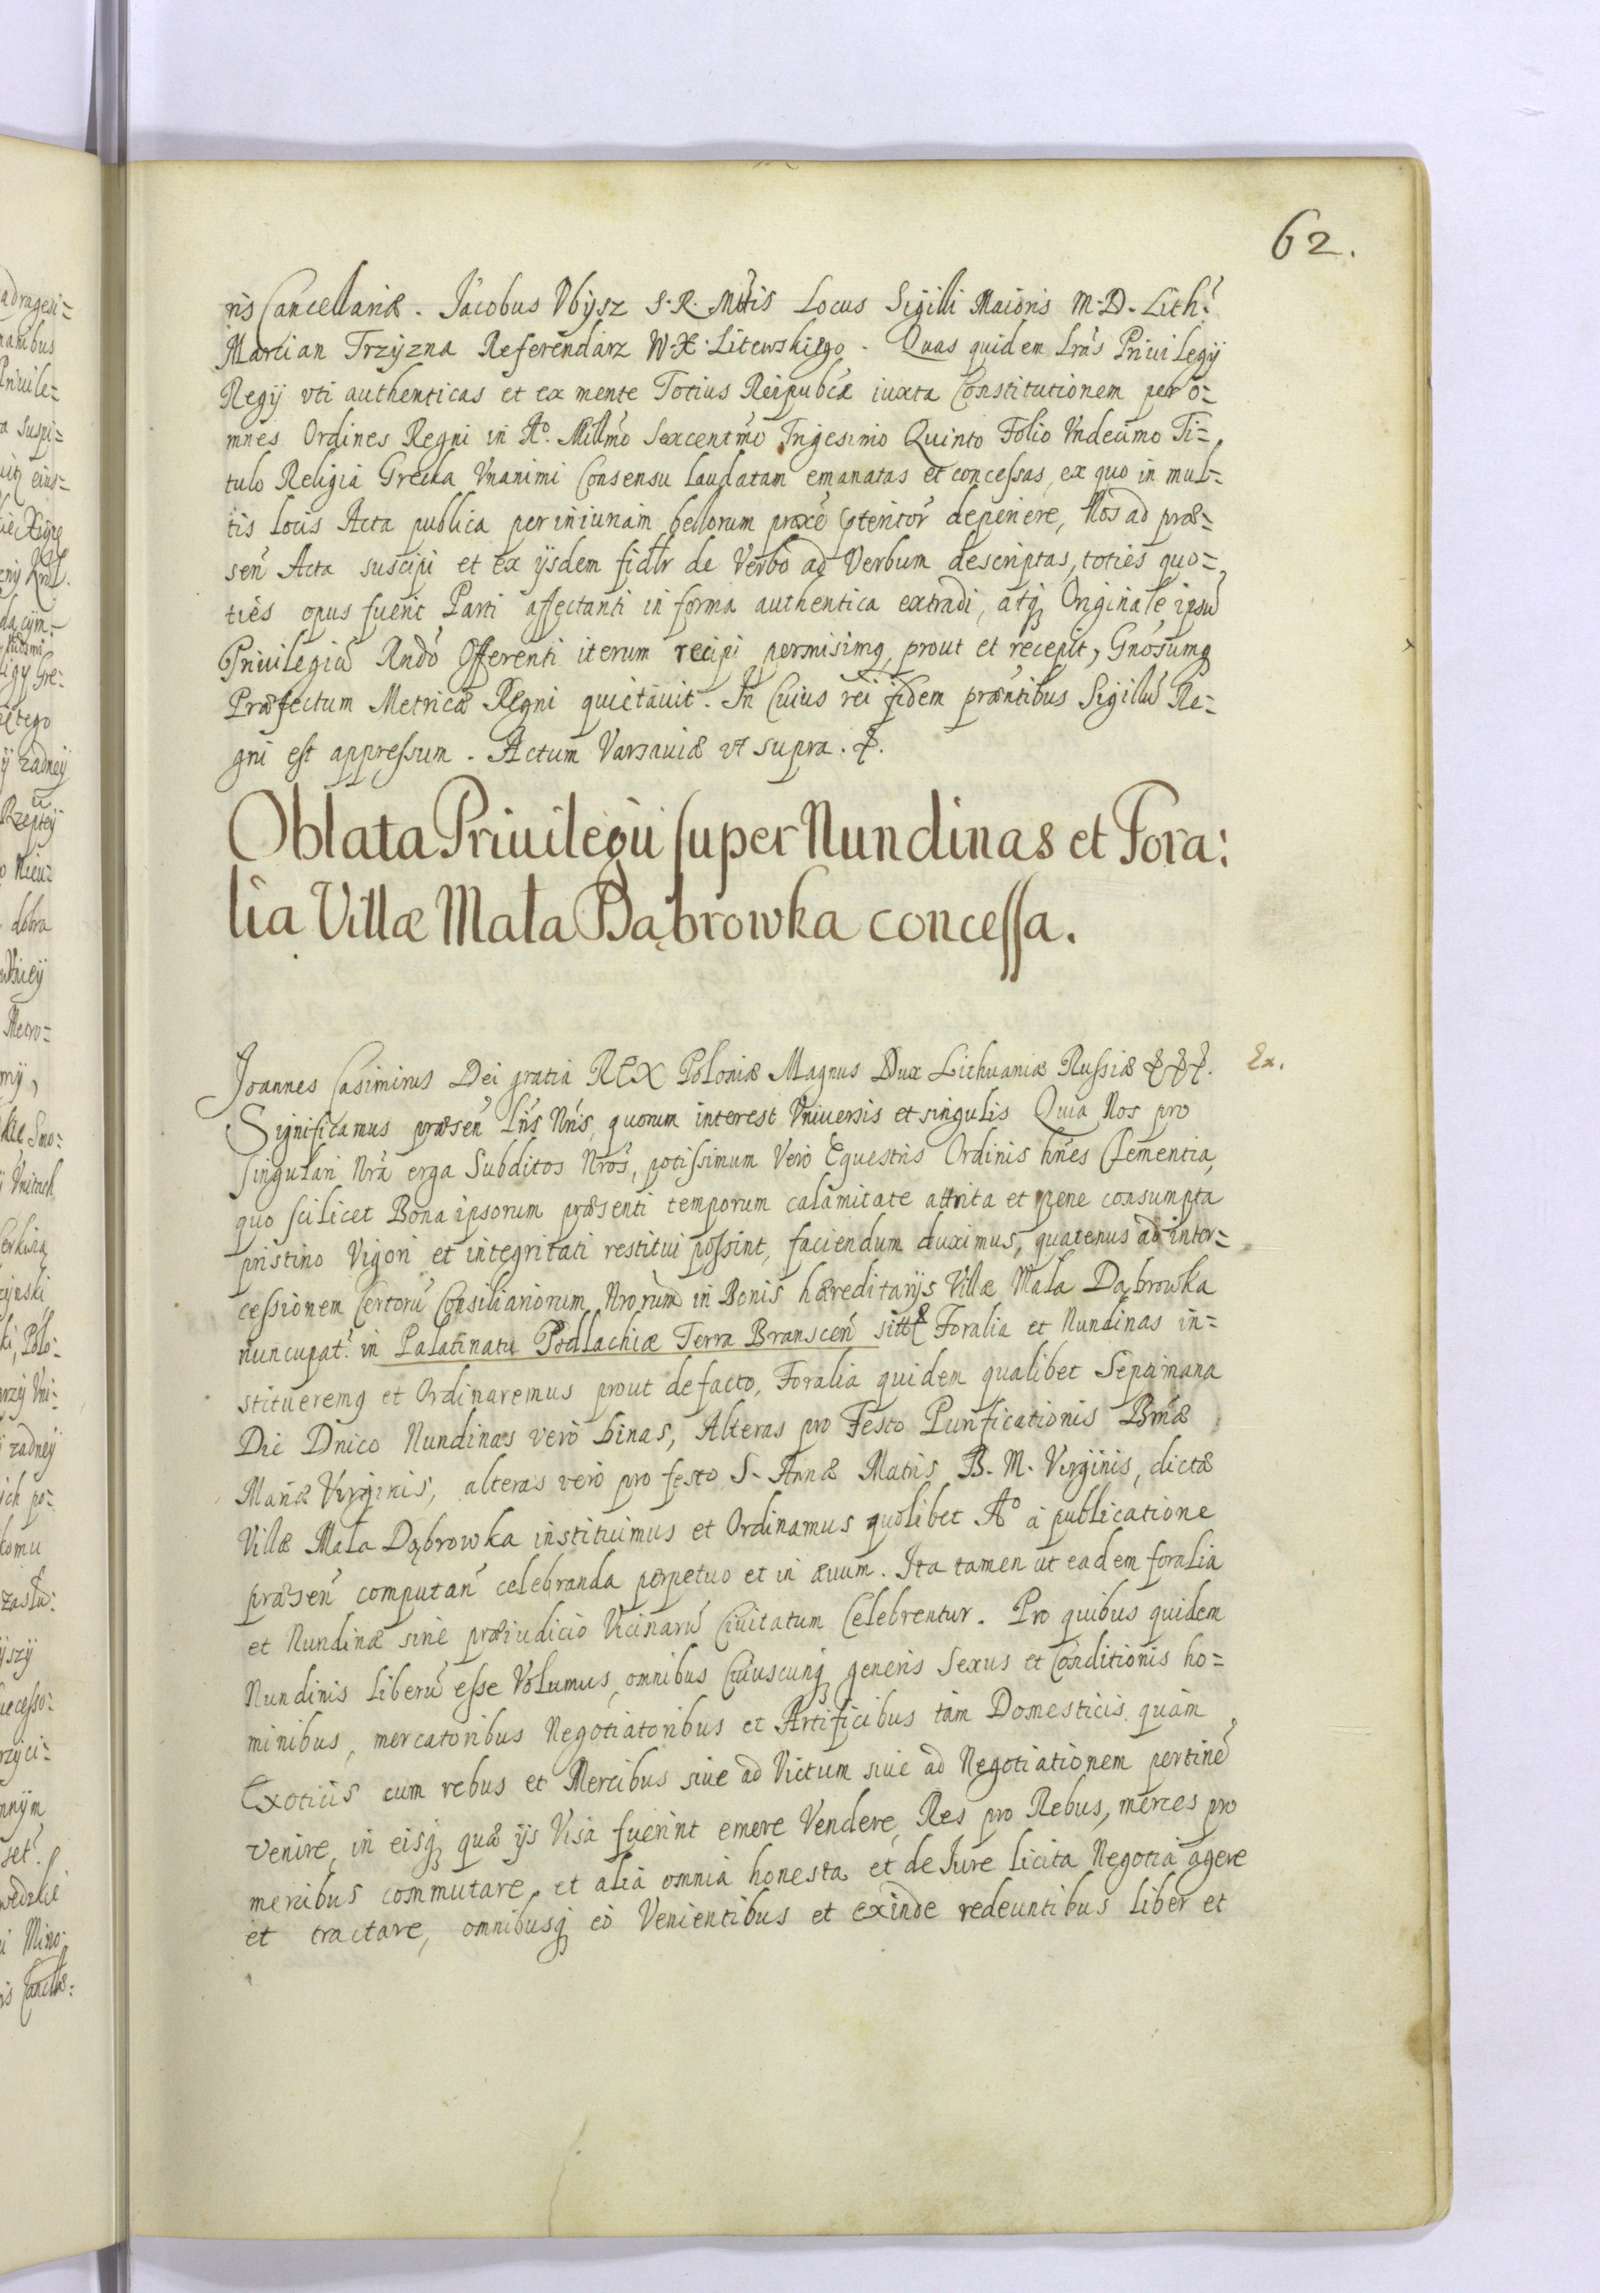 62.
ris Cancellariæ. Jacobus Vbÿsz S. R. Mttis Locus Sigilli Maioris M. D. Lith:
Martian Trzÿzna Referendarz W. X. Litewskiego. Quas quidem Lrás Priuilegÿ
Regÿ vti authenticas et ex mente Totius Reipubcæ iuxta Constitutionem per o=
mnes Ordines Regni in Aº. Millmo Sexcentmo Trigesimo Quinto Folio Vndecimo Ti=
tulo Religia Grecka Vnanimi Consensu laudatam emanatas et concessas, ex quo in mul=
tis locis Acta publica per iniuriam bellorum præteritor deperiere, Nos ad præ=
sen Acta suscipi et ex ijsdem fidlr de Verbo ad Verbum descriptas, toties quo=
ties opus fuerit Parti affectanti in forma authentica extradi, atq Originale ipsu
Priuilegiu Rndo Offerenti iterum recipi permisimq, prout et recepit, Gnosumq
Præfectum Metricæ Regni quietauit. In Cuius rei fidem præntibus Sigillu Re=
gni est appressum. Actum Varsauiæ vt supra. &.
Oblata Priuilegii super Nundinas et Fora:
lia Villæ Mala Dąbrowka concessa.
Joannes Casimirus Dei gratia REX Poloniæ Magnus Dux Lithuaniæ Russiæ &&&. Ex.
Significamus præsen Lris Nris, quorum interest Vniuersis et singulis Quia Nos pro
singulari Nra erga Subditos Nros, potissimum Vero Equestris Ordinis hnes Clementia,
quo scilicet Bona ipsorum præsenti temporum calamitate attrita et pene consumpta
pristino Vigori et integritati restitui possint, faciendum duximus, quatenus ad inter=
cessionem Certoru Consiliariorum Nrorum in Bonis hæreditarÿs Villæ Mala Dąbrowka
nuncupat: in Palatinatu Podlachiæ Terra Branscen sittæ Foralia et Nundinas in=
stitueremq et Ordinaremus prout defacto, Foralia quidem qualibet Septimana
Die Dnico Nundinas vero binas, Alteras pro Festo Purificationis Bmæ
Mariæ Virginis, alteras vero pro festo S. Annæ Matris B. M. Virginis, dictæ
Villæ Mala Dąbrowka instituimus et Ordinamus quolibet Aº à publicatione
præsen computan celebranda perpetuo et in æuum. Ita tamen ut eadem foralia
et Nundinæ sine præiudicio Vicinaru Ciuitatum Celebrentur. Pro quibus quidem
Nundinis liberu esse Volumus, omnibus Cuiuscunq generis Sexus et Conditionis ho=
minibus, mercatoribus Negotiatoribus et Artificibus tam Domesticis quàm
Exoticis cum rebus et Mercibus siue ad Victum siue ad Negotiationem pertine
venire, in eisq quæ ijs Visa fuerint emere Vendere, Res pro Rebus, merces pro
mercibus commutare, et alia omnia honesta et de Iure licita Negotia agere
et tractare, omnibusq eò Venientibus et exinde redeuntibus liber et